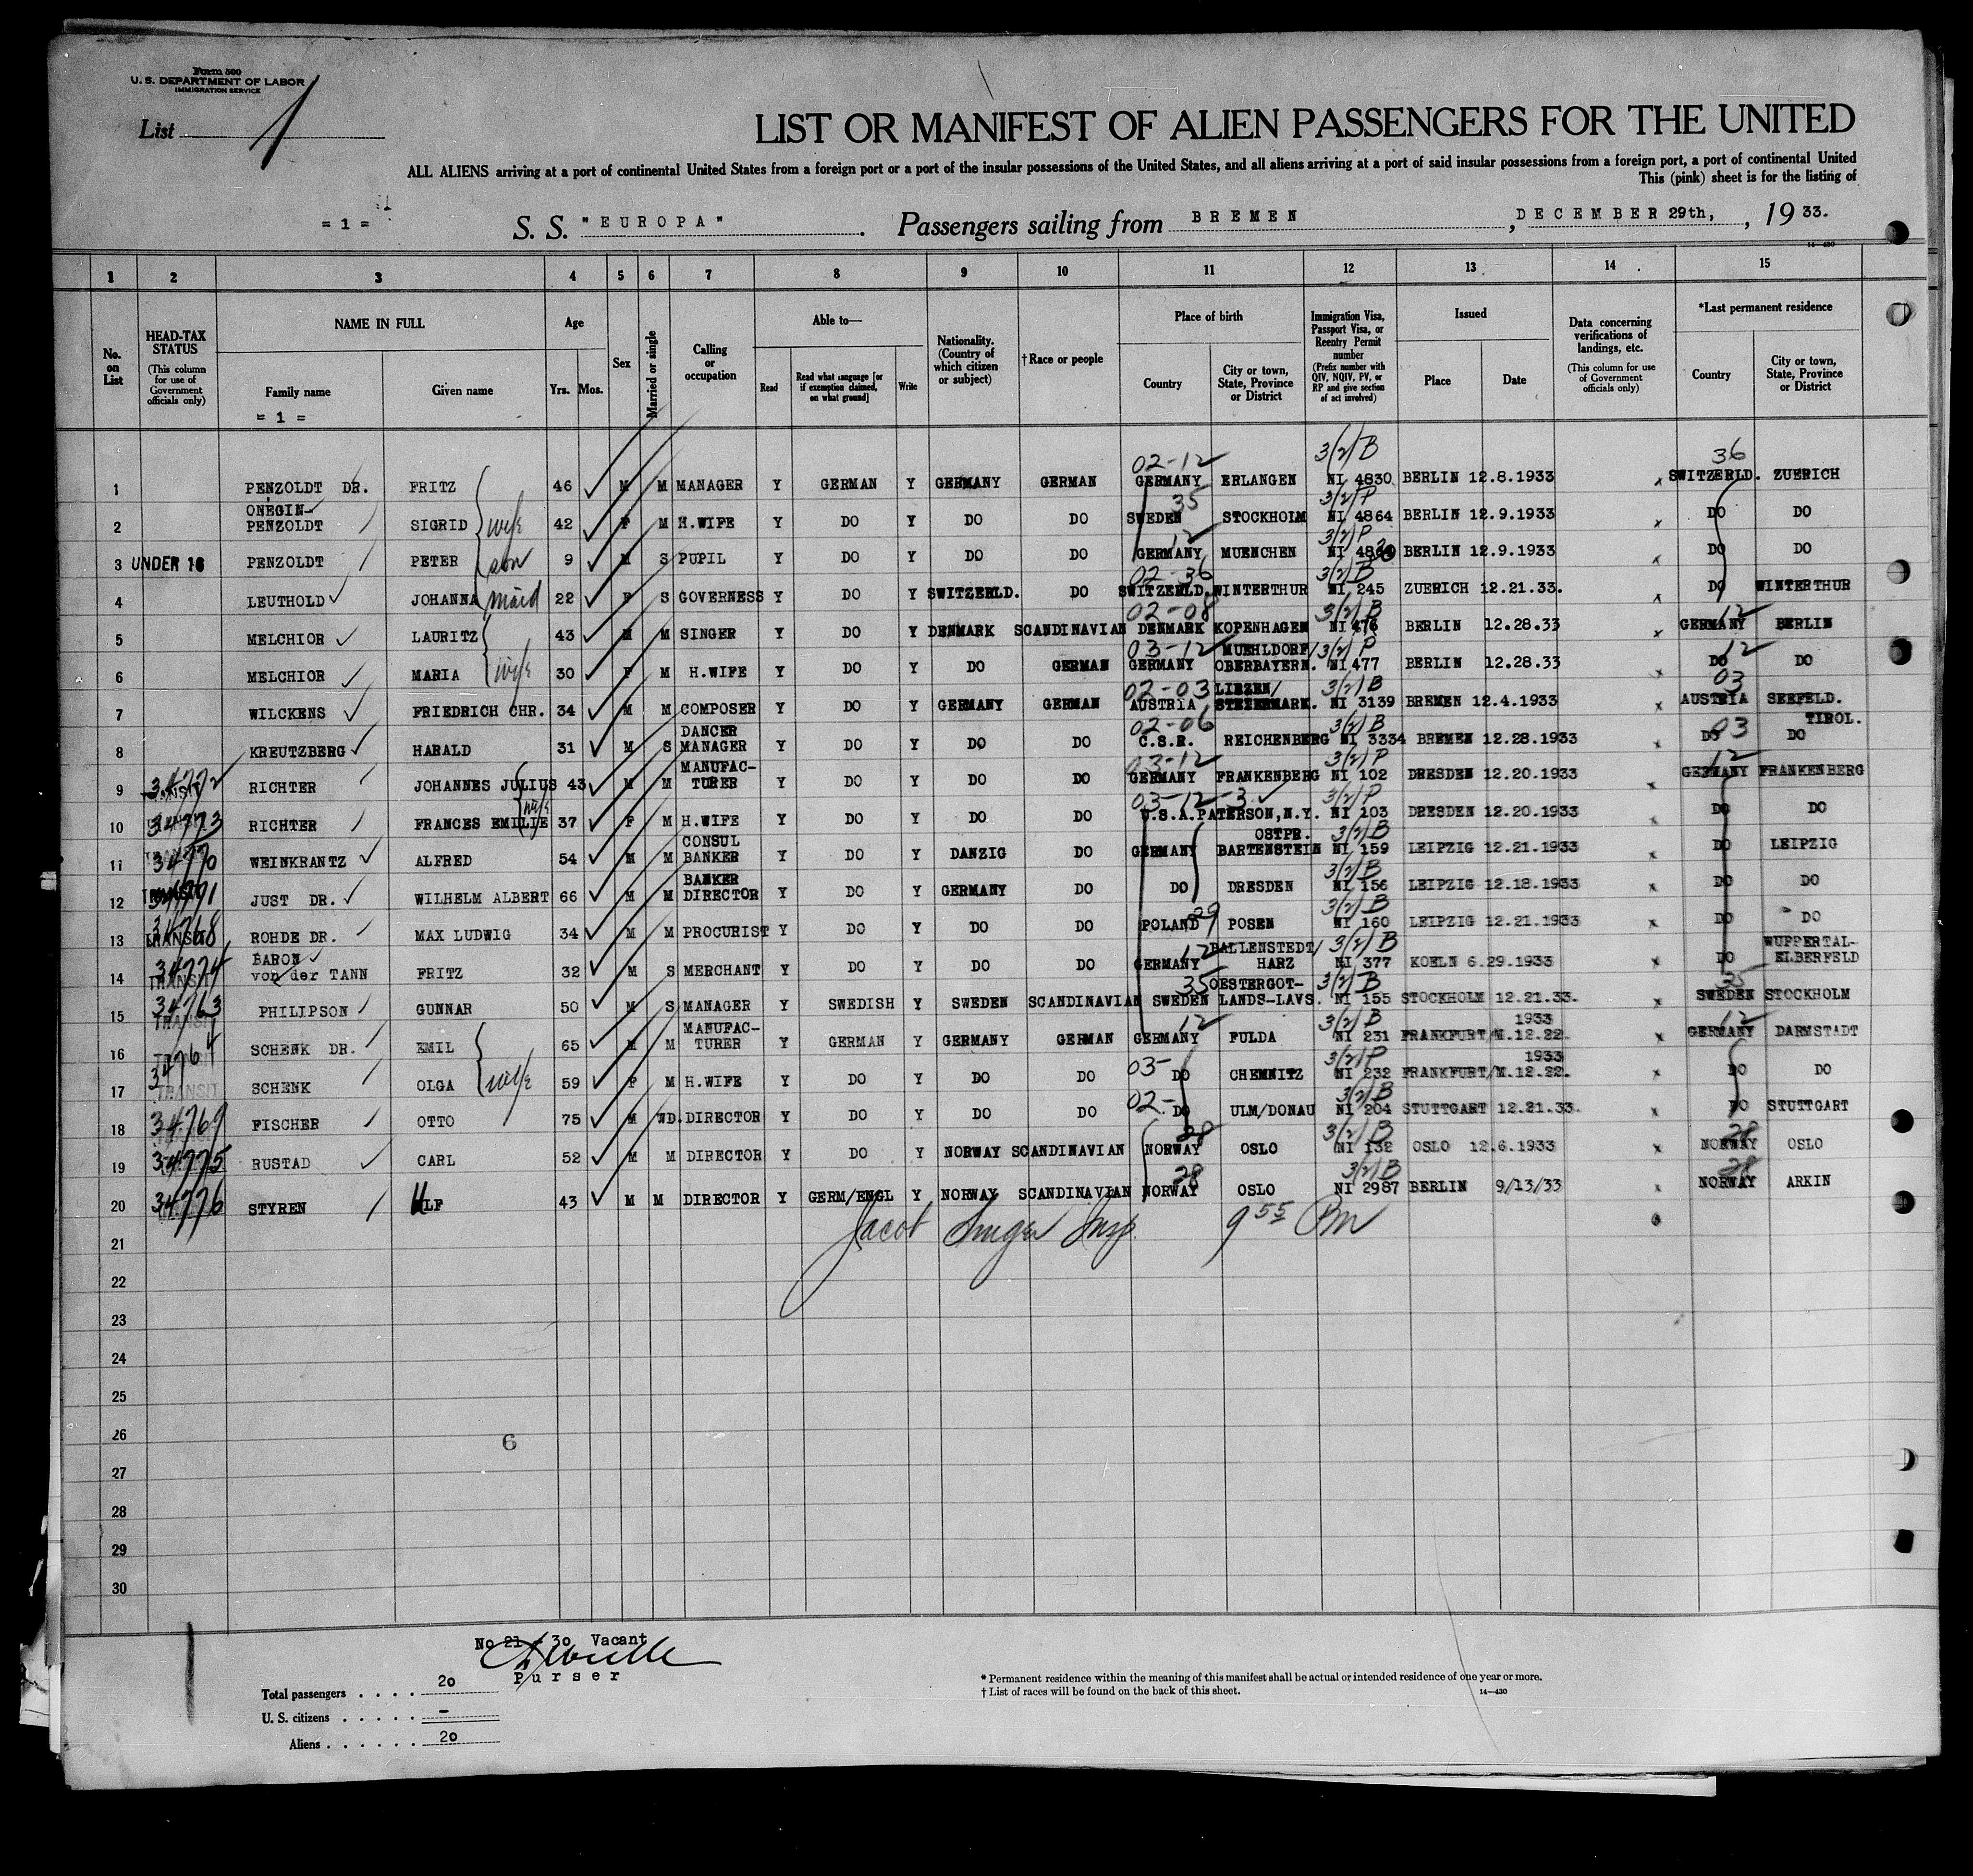 Form 500
U. S. DEPARTMENT OF LABOR
IMMIGRATION SERVICE
List 1
LIST OR MANIFEST OF ALIEN PASSENGERS FOR THE UNITED
ALL ALIENS arriving at a port of continental United States from a foreign port or a port of the insular possessions of the United States, and all aliens arriving at a port of said insular possessions from a foreign port, a port of continental United
This (pink) sheet is for the listing of
= 1 = S. S. "EUROPA". Passengers sailing from BREMEN, DECEMBER 29th,, 19 33.
14—430
1 2 3 4 5 6 7 8 9 10 11 12 13 14 15
No. on List
HEAD-TAX STATUS (This column for use of Government officials only)
NAME IN FULL
Family name
Given name
= 1 =
Age
Yrs. Mos.
Sex
Married or single
Calling or occupation
Able to—
Read
Read what language [or if exemption claimed, on what ground]
Write
Nationality. (Country of which citizen or subject)
†Race or people
Place of birth
Country
City or town, State, Province or District
Immigration Visa, Passport Visa, or Reentry Permit number (Prefix number with QIV, NQIV, PV, or RP and give section of act involved)
Issued
Place
Date
Data concerning verifications of landings, etc. (This column for use of Government officials only)
*Last permanent residence
Country
City or town, State, Province or District
02-12 3(2)B 36
1 PENZOLDT DR. FRITZ 46 M M MANAGER Y GERMAN Y GERMANY GERMAN GERMANY ERLANGEN NI 4830 BERLIN 12.8.1933 x SWITZERLD. ZUERICH
ONEGIN- 35 3(2)P
2 PENZOLDT SIGRID wife 42 F M H.WIFE Y DO Y DO DO SWEDEN STOCKHOLM NI 4864 BERLIN 12.9.1933 x DO DO
12 3(2)P
3 UNDER 16 PENZOLDT PETER son 9 M S PUPIL Y DO Y DO DO GERMANY MUENCHEN NI BERLIN 12.9.1933 x DO DO
02-36 3(2)B
4 LEUTHOLD JOHANNA maid 22 F S GOVERNESS Y DO Y SWITZERLD. DO SWITZERLD. WINTERTHUR NI 245 ZUERICH 12.21.33. x DO WINTERTHUR
02-08 3(2)B 12
5 MELCHIOR LAURITZ 43 M M SINGER Y DO Y DENMARK SCANDINAVIAN DENMARK KOPENHAGEN NI 476 BERLIN 12.28.33 x GERMANY BERLIN
03-12 MUEHLDORF/ 3(2)P 12
6 MELCHIOR MARIA wife 30 F M H.WIFE Y DO Y DO GERMAN GERMANY OBERBAYERN. NI 477 BERLIN 12.28.33 x DO DO
02-03 LIEZEN/ 3(2)B 03
7 WILCKENS FRIEDRICH CHR. 34 M M COMPOSER Y DO Y GERMANY GERMAN AUSTRIA STEIERMARK. NI 3139 BREMEN 12.4.1933 x AUSTRIA SEEFELD. TIROL.
DANCER 02-06 3(2)B 03
8 KREUTZBERG HARALD 31 M S MANAGER Y DO Y DO DO C.S.R. REICHENBERG NI 3334 BREMEN 12.28.1933 x DO DO
MANUFAC- 03-12 3(2)P 12
9 34772 TRANSIT RICHTER JOHANNES JULIUS 43 M M TURER Y DO Y DO DO GERMANY FRANKENBERG NI 102 DRESDEN 12.20.1933 x GERMANY FRANKENBERG
03-12-3 3(2)P
10 34773 RICHTER FRANCES EMILIE wife 37 F M H.WIFE Y DO Y DO DO U.S.A. PATERSON, N.Y. NI 103 DRESDEN 12.20.1933 x DO DO
CONSUL OSTPR. 3(2)B
11 34770 WEINKRANTZ ALFRED 54 M M BANKER Y DO Y DANZIG DO GERMANY BARTENSTEIN NI 159 LEIPZIG 12.21.1933 x DO LEIPZIG
BANKER 3(2)B
12 34771 JUST DR. WILHELM ALBERT 66 M M DIRECTOR Y DO Y GERMANY DO DO DRESDEN NI 156 LEIPZIG 12.18.1933 x DO DO
29 3(2)B
13 34768 TRANSIT ROHDE DR. MAX LUDWIG 34 M M PROCURIST Y DO Y DO DO POLAND POSEN NI 160 LEIPZIG 12.21.1933 x DO DO
BARON 12 BALLENSTEDT/ 3(2)B WUPPERTAL-
14 34774 TRANSIT von der TANN FRITZ 32 M S MERCHANT Y DO Y DO DO GERMANY HARZ NI 377 KOELN 6.29.1933 x DO ELBERFELD
35 OESTERGOT- 3(2)B 35
15 34763 TRANSIT PHILIPSON GUNNAR 50 M S MANAGER Y SWEDISH Y SWEDEN SCANDINAVIAN SWEDEN LANDS-LAVS. NI 155 STOCKHOLM 12.21.33. x SWEDEN STOCKHOLM
MANUFAC- 12 3(2)B 1933 12
16 SCHENK DR. EMIL 65 M M TURER Y GERMAN Y GERMANY GERMAN GERMANY FULDA NI 231 FRANKFURT/M. 12.22. x GERMANY DARMSTADT
03- 3(2)P 1933
17 TRANSIT SCHENK OLGA wife 59 F M H.WIFE Y DO Y DO DO DO CHEMNITZ NI 232 FRANKFURT/M. 12.22. x DO DO
02- 3(2)B
18 34769 FISCHER OTTO 75 M WD. DIRECTOR Y DO Y DO DO DO ULM/DONAU NI 204 STUTTGART 12.21.33. x DO STUTTGART
28 3(2)B 28
19 34775 RUSTAD CARL 52 M M DIRECTOR Y DO Y NORWAY SCANDINAVIAN NORWAY OSLO NI 132 OSLO 12.6.1933 x NORWAY OSLO
28 3(2)B 28
20 34776 STYREN ULF 43 M M DIRECTOR Y GERM/ENGL Y NORWAY SCANDINAVIAN NORWAY OSLO NI 2987 BERLIN 9/13/33 x NORWAY ARKIN
21 Jacob Singer Insp. 9 55 Pm
22
23
24
25
26 6
27
28
29
30
No 21 - 30 Vacant
Purser
Total passengers . . . . 20
U. S. citizens . . . . . -
Aliens . . . . . . 20
* Permanent residence within the meaning of this manifest shall be actual or intended residence of one year or more.
† List of races will be found on the back of this sheet.
14—430